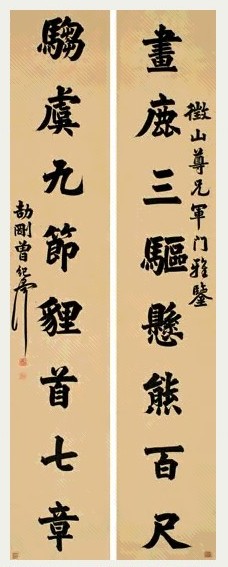 畫鹿三驅懸熊百尺
徵山尊兄軍门雅鑒
騶虞九節貍首七章
劼剛曾紀澤